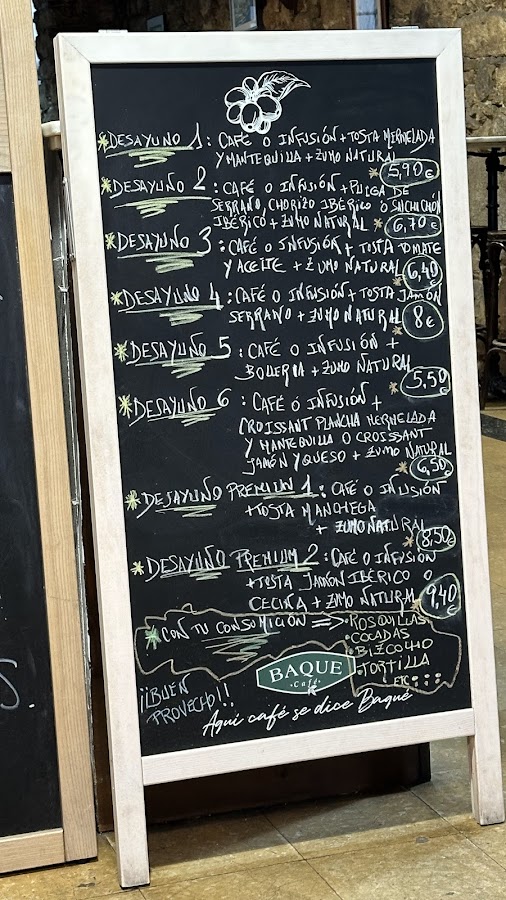 *DESAYUNO 1: CAFÉ O INFUSIÓN + TOSTA MERMELADA
Y MANTEQUILLA + ZUMO NATURAL
* 5,90€
*DESAYUNO 2: CAFÉ O INFUSIÓN + PULGA DE
SERRANO, CHORIZO IBÉRICO O SALCHICHÓN
IBÉRICO + ZUMO NATURAL * 6,70€
*DESAYUNO 3: CAFÉ O INFUSIÓN + TOSTA TOMATE
Y ACEITE + ZUMO NATURAL * 6,40€
*DESAYUNO 4: CAFÉ O INFUSIÓN + TOSTA JAMÓN
SERRANO + ZUMO NATURAL * 8€
*DESAYUNO 5: CAFÉ O INFUSIÓN +
BOLLERIA + ZUMO NATURAL
* 5,50€
*DESAYUNO 6: CAFÉ Ó INFUSIÓN +
CROISSANT PLANCHA MERMELADA
Y MANTEQUILLA O CROISSANT
JAMÓN Y QUESO + ZUMO NATURAL
* 6,50€
*DESAYUNO PREMIUM 1: CAFÉ O INFUSIÓN
+ TOSTA MANCHEGA
+ ZUMO NATURAL
* 8,50€
*DESAYUNO PREMIUM 2: CAFÉ O INFUSION
+ TOSTA JAMÓN IBÉRICO O
CECINA + ZUMO NATURAL * 9,40€
*CON TU CONSUMICIÓN => • ROSQUILLAS
• COCADAS
• BIZCOCHO
• TORTILLA
ETC...
BAQUE
• Café •
¡¡BUEN
PROVECHO!!
Aquí café se dice Baqué
S.